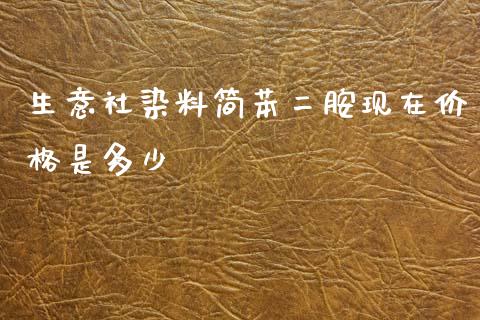 生意社染料简苯二胺现在价
格是多少